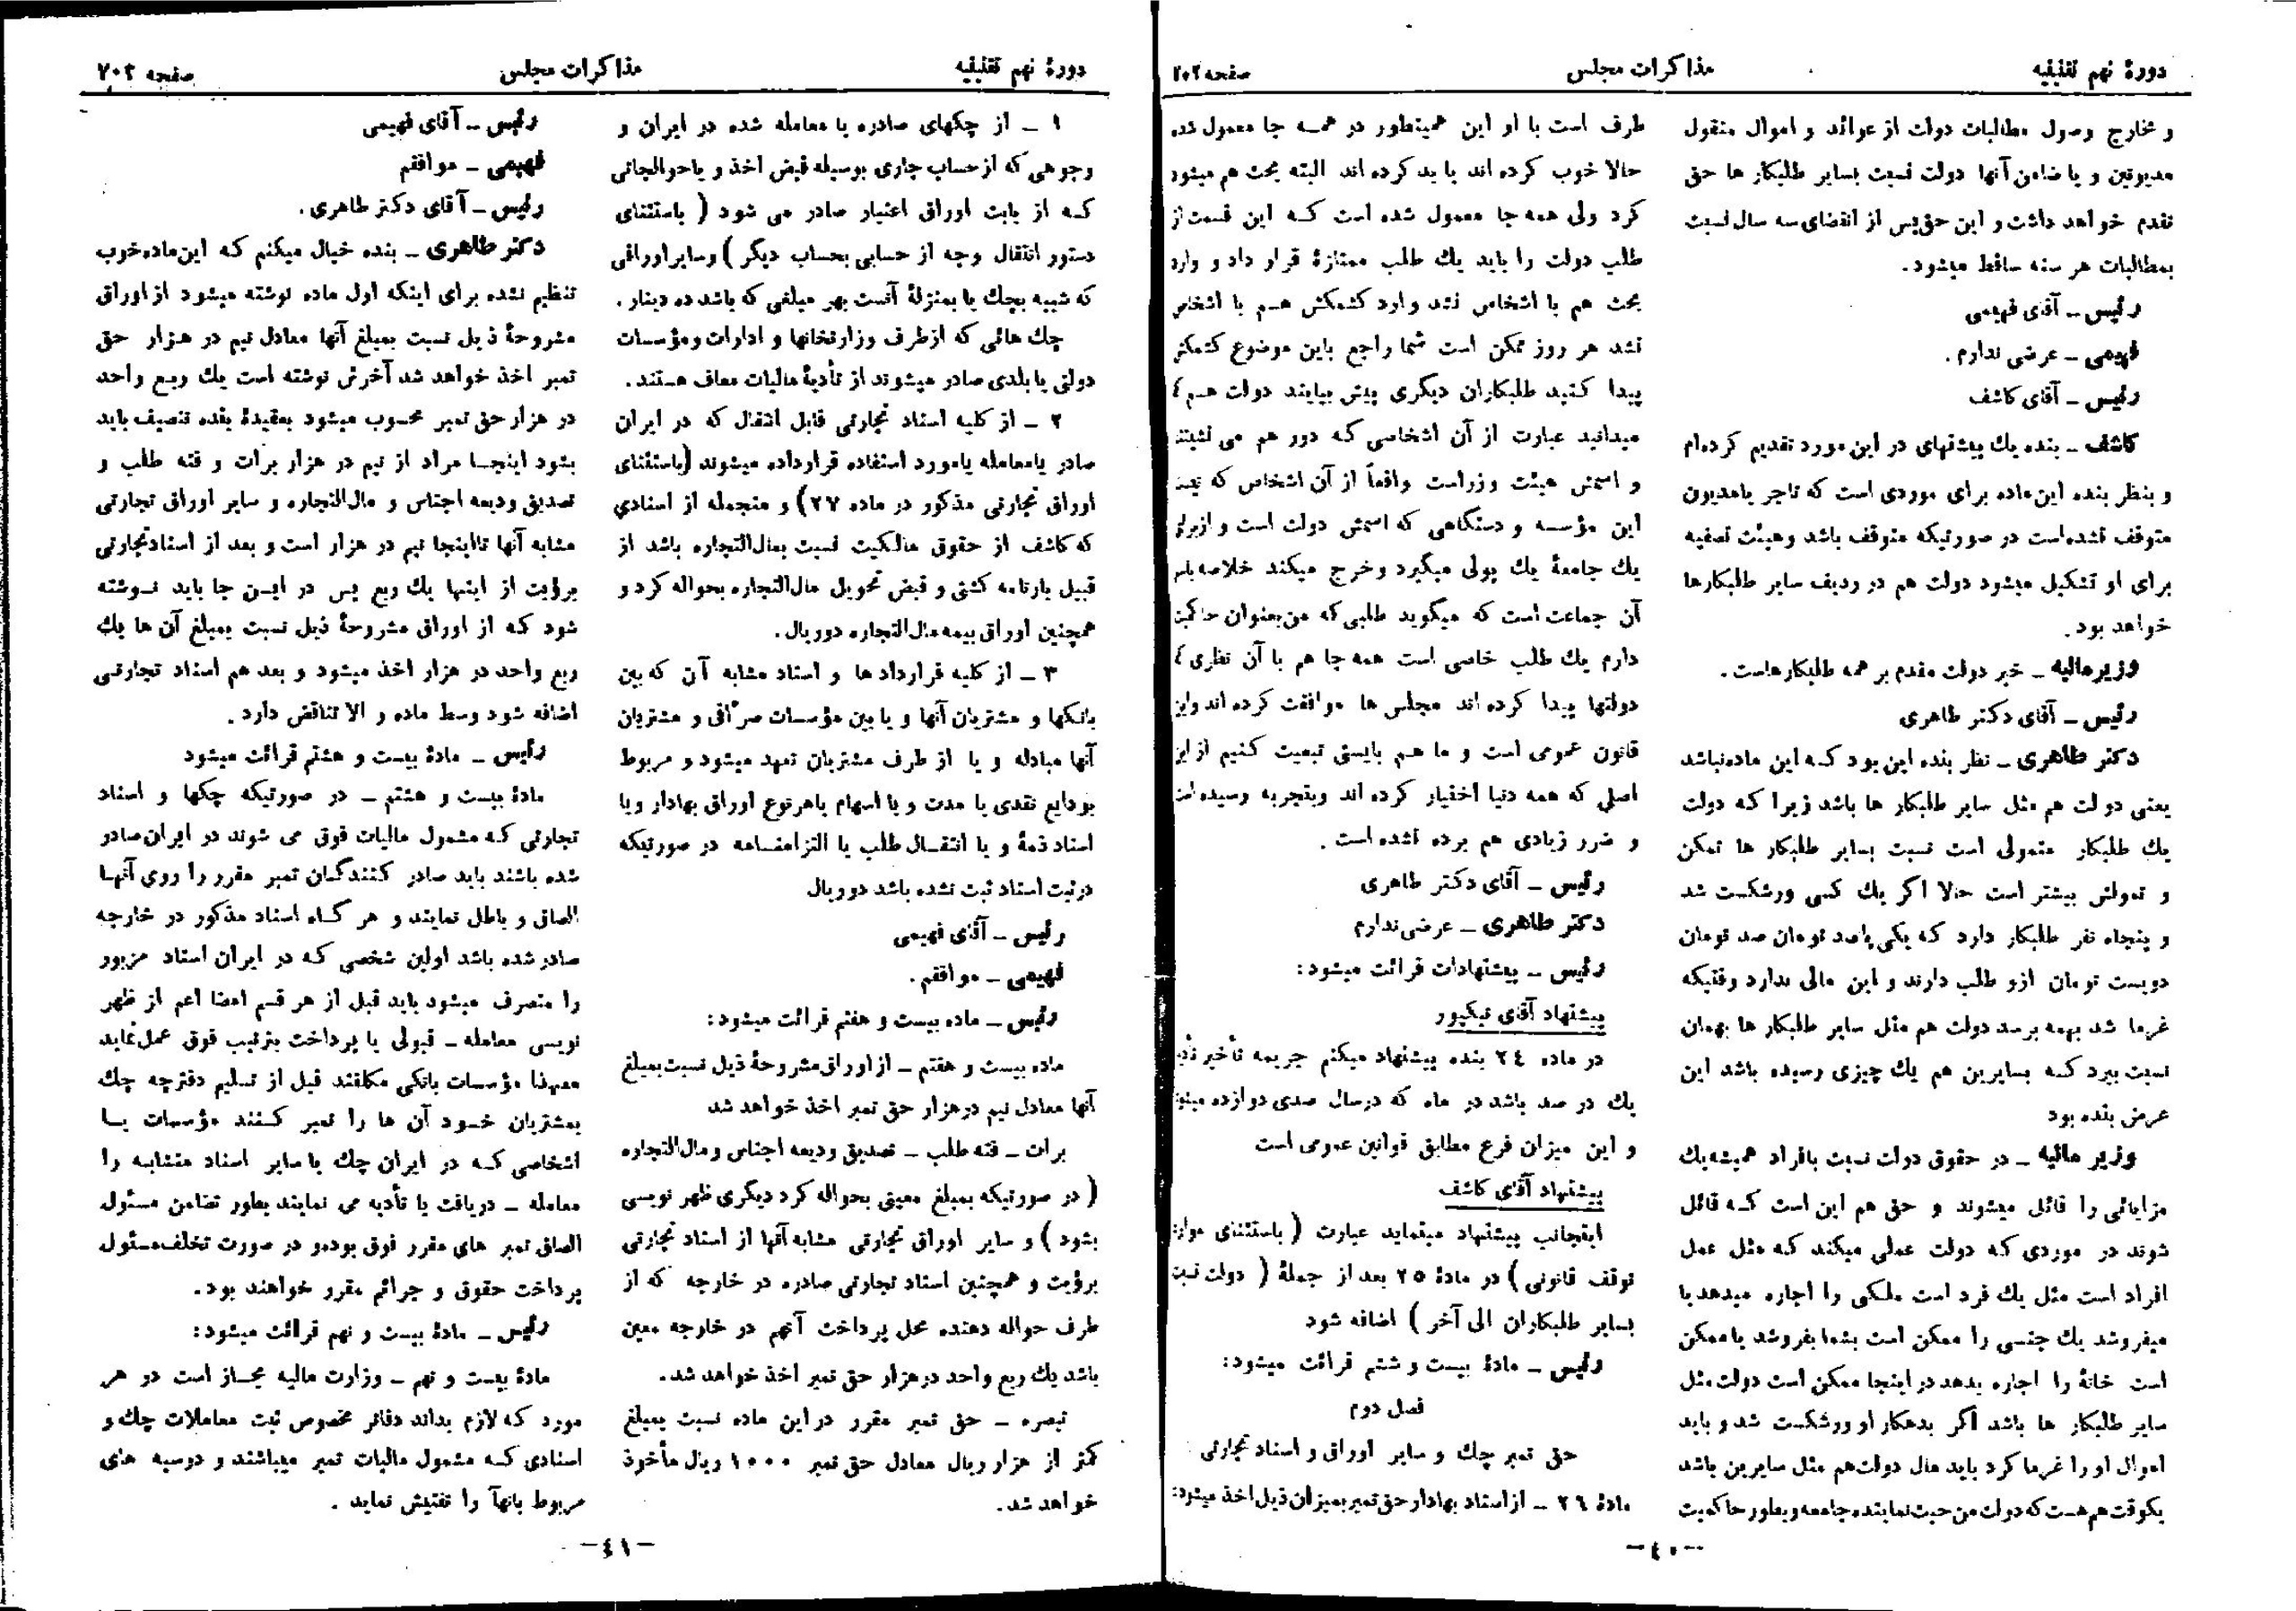 دورهٔ نهم تقنینیه
مذاکرات مجلس
صفحه ۷۰۲
و مخارج وصول مطالبات دولت از عوائد و اموال منقول
مدیونین و یا ضامن آنها دولت نسبت بسایر طلبکار ها حق
تقدم خواهد داشت و این حق پس از انقضای سه سال نسبت
بمطالبات هر سنه ساقط میشود.
رئیس ـ آقای فهیمی
فهیمی ـ عرضی ندارم.
رئیس ـ آقای کاشف
کاشف ـ بنده یك پیشنهای در این مورد تقدیم کرده‌ام
و بنظر بنده این ماده برای موردی است که تاجر یا مدیون
متوقف نشده‌است در صورتیکه متوقف باشد و هیئت تصفیه
برای او تشکیل میشود دولت هم در ردیف سایر طلبکارها
خواهد بود.
وزیر مالیه ـ خیر دولت مقدم بر همه طلبکارهاست.
رئیس ـ آقای دکتر طاهری
دکتر طاهری ـ نظر بنده این بود که این ماده نباشد
یعنی دولت هم مثل سایر طلبکار ها باشد زیرا که دولت
یك طلبکار متمولی است نسبت بسایر طلبکار ها تمکن
و تمولش بیشتر است حالا اگر یك کسی ورشکست شد
و پنجاه نفر طلبکار دارد که یکی پانصد تومان صد تومان
دویست تومان ازو طلب دارند و این مالی ندارد وقتیکه
غرما شد بهمه برسد دولت هم مثل سایر طلبکار ها بهمان
نسبت ببرد که بسایرین هم یك چیزی رسیده باشد این
عرض بنده بود
وزیر مالیه ـ در حقوق دولت نسبت بافراد همیشه یك
مزایائی را قائل میشوند و حق هم این است که قائل
شوند در موردی که دولت عملی میکند که مثل عمل
افراد است مثل یك فرد است ملکی را اجاره میدهد یا
میفروشد یك جنسی را ممکن است بشما بفروشد یا ممکن
است خانهٔ را اجاره بدهد در اینجا ممکن است دولت مثل
سایر طلبکار ها باشد اگر بدهکار او ورشکست شد و باید
اموال او را غرما کرد باید مال دولت هم مثل سایرین باشد
یکوقت هم هست که دولت من حیث نماینده جامعه و بطور حاکمیت
طرف است با او این همینطور در همه جا معمول شده
حالا خوب کرده اند یا بد کرده اند البته بحث هم میشود
کرد ولی همه جا معمول شده است که این قسمت از
طلب دولت را باید یك طلب ممتازهٔ قرار داد و وارد
بحث هم با اشخاص نشد و وارد کشمکش هم با اشخاص
نشد هر روز ممکن است شما راجع باین موضوع کشمکش
پیدا کنید طلبکاران دیگری پیش بیایند دولت هم که
میدانید عبارت از آن اشخاصی که دور هم می نشینند
و اسمش هیئت وزراست واقعاً از آن اشخاص که نیست
این مؤسسه و دستگاهی که اسمش دولت است و از برای
یك جامعهٔ یك پولی میگیرد و خرج میکند خلاصه پس
آن جماعت است که میگوید طلبی که من بعنوان حاکمیت
دارم یك طلب خاصی است همه جا هم با آن نظری که
دولتها پیدا کرده اند مجلس ها موافقت کرده اند و این
قانون عمومی است و ما هم بایستی تبعیت کنیم از این
اصلی که همه دنیا اختیار کرده اند و بتجربه رسیده است
و ضرر زیادی هم برده نشده است.
رئیس ـ آقای دکتر طاهری
دکتر طاهری ـ عرضی ندارم
رئیس ـ پیشنهادات قرائت میشود:
پیشنهاد آقای نیکپور
در ماده ۲۴ بنده پیشنهاد میکنم جریمه تأخیر تأدیه
یك در صد باشد در ماه که در سال صدی دوازده میشود
و این میزان فرع مطابق قوانین عمومی است
پیشنهاد آقای کاشف
اینجانب پیشنهاد مینماید عبارت ( باستثنای موارد
توقف قانونی ) در مادهٔ ۲۵ بعد از جملهٔ ( دولت نسبت
بسایر طلبکاران الی آخر ) اضافه شود
رئیس ـ مادهٔ بیست و ششم قرائت میشود:
فصل دوم
حق تمبر چك و سایر اوراق و اسناد تجارتی
مادهٔ ۲۶ ـ از اسناد بهادار حق تمبر بمیزان ذیل اخذ میشود:
ـ۴۰ـ
دورهٔ نهم تقنینیه
مذاکرات مجلس
صفحه ۷۰۳
۱ ـ از چکهای صادره یا معامله شده در ایران و
وجوهی که از حساب جاری بوسیله قبض اخذ و یا حوالجاتی
که از بابت اوراق اعتبار صادر می شود ( باستثنای
دستور انتقال وجه از حسابی بحساب دیگر ) و سایر اوراقی
که شبیه بچك یا بمنزلهٔ آنست بهر مبلغی که باشد ده دینار.
چك هائی که از طرف وزارتخانها و ادارات و مؤسسات
دولتی یا بلدی صادر میشوند از تأدیهٔ مالیات معاف هستند.
۲ ـ از کلیه اسناد تجارتی قابل انتقال که در ایران
صادر یا معامله یا مورد استفاده قرار داده میشوند (باستثنای
اوراق تجارتی مذکور در ماده ۲۷) و منجمله از اسنادی
که کاشف از حقوق مالکیت نسبت بمال‌التجاره باشد از
قبیل بارنامه کشتی و قبض تحویل مال‌التجاره بحواله کرد و
همچنین اوراق بیمه مال‌التجاره دو ریال.
۳ ـ از کلیه قرارداد ها و اسناد مشابه آن که بین
بانکها و مشتریان آنها و یا بین مؤسسات صرّافی و مشتریان
آنها مبادله و یا از طرف مشتریان تعهد میشود و مربوط
بودایع نقدی یا مدت و یا اسهام یا هر نوع اوراق بهادار و یا
اسناد ذمهٔ و یا انتقال طلب یا التزامنامه در صورتیکه
در ثبت اسناد ثبت نشده باشد دو ریال
رئیس ـ آقای فهیمی
فهیمی ـ موافقم.
رئیس ـ ماده بیست و هفتم قرائت میشود:
ماده بیست و هفتم ـ از اوراق مشروحهٔ ذیل نسبت بمبلغ
آنها معادل نیم در هزار حق تمبر اخذ خواهد شد
برات ـ فته طلب ـ تصدیق ودیعه اجناس و مال‌التجاره
( در صورتیکه بمبلغ معینی بحواله کرد دیگری ظهر نویسی
بشود ) و سایر اوراق تجارتی مشابه آنها از اسناد تجارتی
برؤیت و همچنین اسناد تجارتی صادره در خارجه که از
طرف حواله دهنده محل پرداخت آنهم در خارجه معین
باشد یك ربع واحد در هزار حق تمبر اخذ خواهد شد.
تبصره ـ حق تمبر مقرر در این ماده نسبت بمبلغ
کمتر از هزار ریال معادل حق تمبر ۱۰۰۰ ریال مأخوذ
خواهد شد.
رئیس ـ آقای فهیمی
فهیمی ـ موافقم
رئیس ـ آقای دکتر طاهری.
دکتر طاهری ـ بنده خیال میکنم که این ماده خوب
تنظیم نشده برای اینکه اول ماده نوشته میشود از اوراق
مشروحهٔ ذیل نسبت بمبلغ آنها معادل نیم در هزار حق
تمبر اخذ خواهد شد آخرش نوشته است یك ربع واحد
در هزار حق تمبر محسوب میشود بعقیدهٔ بنده تنصیف باید
بشود اینجا مراد از نیم در هزار برات و فته طلب و
تصدیق ودیعه اجناس و مال‌التجاره و سایر اوراق تجارتی
مشابه آنها تا اینجا نیم در هزار است و بعد از اسناد تجارتی
برؤیت از اینها یك ربع پس در این جا باید نوشته
شود که از اوراق مشروحهٔ ذیل نسبت بمبلغ آن ها یك
ربع واحد در هزار اخذ میشود و بعد هم اسناد تجارتی
اضافه شود وسط ماده و الا تناقض دارد.
رئیس ـ مادهٔ بیست و هشتم قرائت میشود
مادهٔ بیست و هشتم ـ در صورتیکه چکها و اسناد
تجارتی که مشمول مالیات فوق می شوند در ایران صادر
شده باشند باید صادر کنندگان تمبر مقرر را روی آنها
الصاق و باطل نمایند و هر گاه اسناد مذکور در خارجه
صادر شده باشد اولین شخصی که در ایران اسناد مزبور
را متصرف میشود باید قبل از هر قسم امضا اعم از ظهر
نویسی معامله ـ قبولی یا پرداخت بترتیب فوق عمل نماید
معهذا مؤسسات بانکی مکلفند قبل از تسلیم دفترچه چك
بمشتریان خود آن ها را تمبر کنند مؤسسات یا
اشخاصی که در ایران چك یا سایر اسناد متشابه را
معامله ـ دریافت یا تأدیه می نمایند بطور تضامن مسئول
الصاق تمبر های مقرر فوق بوده و در صورت تخلف مسئول
پرداخت حقوق و جرائم مقرر خواهند بود.
رئیس ـ مادهٔ بیست و نهم قرائت میشود:
مادهٔ بیست و نهم ـ وزارت مالیه مجاز است در هر
مورد که لازم بداند دفاتر مخصوص ثبت معاملات چك و
اسنادی که مشمول مالیات تمبر میباشند و دوسیه های
مربوط بانهآ را تفتیش نماید.
ـ۴۱ـ